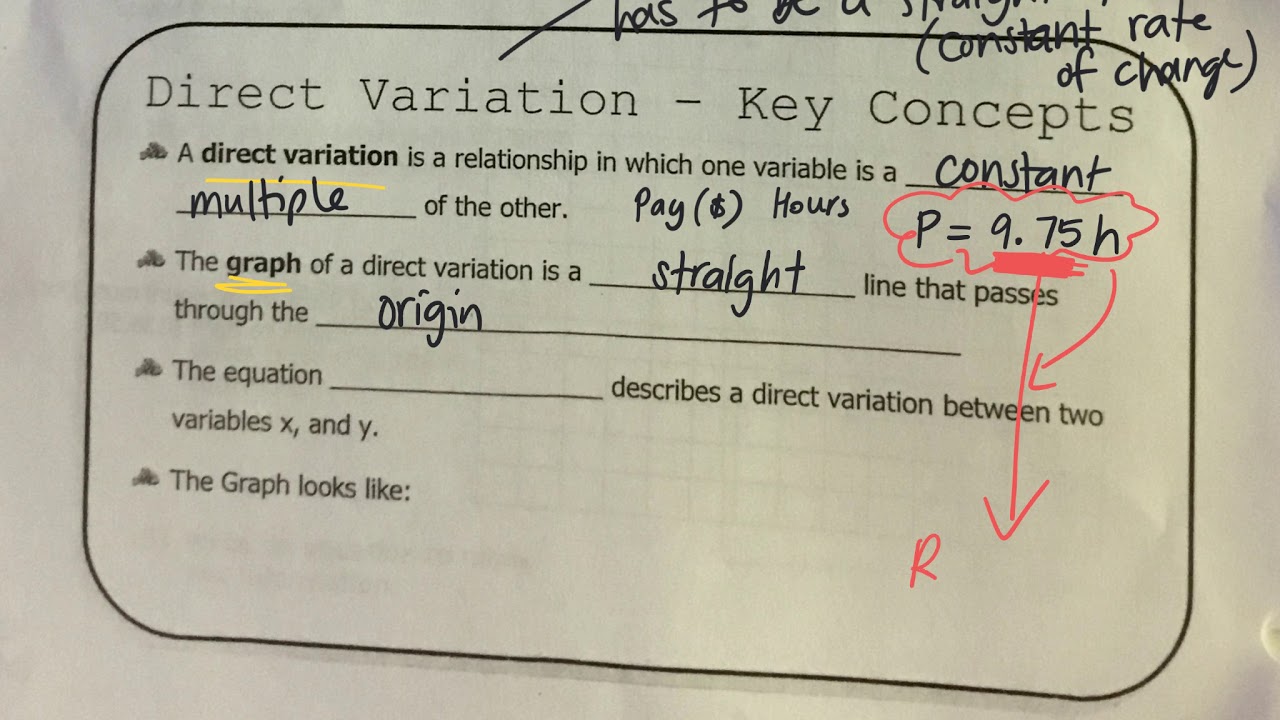 has to be a straight
(constant rate
of change)
Direct Variation - Key Concepts
A direct variation is a relationship in which one variable is a constant
multiple of the other. Pay ($) Hours P = 9.75h
The graph of a direct variation is a straight line that passes
through the origin
The equation ____________ describes a direct variation between two
variables x, and y.
The Graph looks like:
R